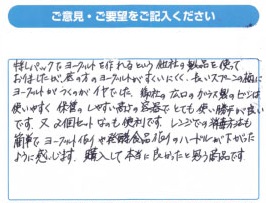 ご意見・ご要望をご記入ください
牛乳パックでヨーグルトを作れるという他社の製品を使って
おりましたが、底の方のヨーグルトがすくいにくく、長いスプーンの柄に
ヨーグルトがつくのがイヤでした。御社の広口のガラス製のビンは
使いやすく保管のしやすい高さの容器でとても使い勝手が良い
です。又、2個セットなのも便利です。レンジでの消毒方法も
簡単で、ヨーグルト作りや発酵食品作りのハードルが下がった
ように感じます。購入して本当に良かったと思う商品です。